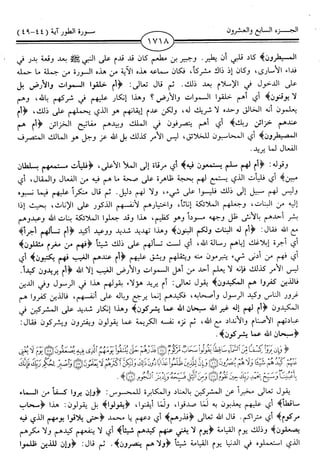 الجزء السابع والعشرون
١٧١٨
سورة الطور آية (٤٤-٤٩)
المسيطرون﴾ كاد قلبي أن يطير. وجبير بن مطعم كان قد قدم على النبي ﷺ بعد وقعة بدر في
فداء الأسارى، وكان إذ ذاك مشركاً، فكان سماعه هذه الآية من هذه السورة من جملة ما حمله
على الدخول في الإسلام بعد ذلك. ثم قال تعالى: ﴿أم خلقوا السموات والأرض بل
لا يوقنون﴾ أي أهم خلقوا السموات والأرض؟ وهذا إنكار عليهم في شركهم بالله، وهم
يعلمون أنه الخالق وحده لا شريك له، ولكن عدم إيقانهم هو الذي يحملهم على ذلك، ﴿أم
عندهم خزائن ربك﴾ أي أهم يتصرفون في الملك وبيدهم مفاتيح الخزائن ﴿أم هم
المصيطرون﴾ أي المحاسبون للخلائق، ليس الأمر كذلك بل الله عز وجل هو المالك المتصرف
الفعال لما يريد.
وقوله: ﴿أم لهم سلم يستمعون فيه﴾ أي مرقاة إلى الملأ الأعلى، ﴿فليأت مستمعهم بسلطان
مبين﴾ أي فليأت الذي يستمع لهم بحجة ظاهرة على صحة ما هم فيه من الفعال والمقال، أي
وليس لهم سبيل إلى ذلك فليسوا على شيء، ولا لهم دليل. ثم قال منكراً عليهم فيما نسبوه
إليه من البنات، وجعلهم الملائكة إناثاً، واختيارهم لأنفسهم الذكور على الإناث، بحيث إذا
بشر أحدهم بالأنثى ظل وجهه مسوداً وهو كظيم، هذا وقد جعلوا الملائكة بنات الله وعبدوهم
مع الله فقال: ﴿أم له البنات ولكم البنون﴾ وهذا تهديد شديد ووعيد أكيد ﴿أم تسألهم أجراً﴾
أي أجرة إبلاغك إياهم رسالة الله، أي لست تسألهم على ذلك شيئاً ﴿فهم من مغرم مثقلون﴾
أي فهم من أدنى شيء يتبرمون منه ويثقلهم ويشق عليهم ﴿أم عندهم الغيب فهم يكتبون﴾ أي
ليس الأمر كذلك فإنه لا يعلم أحد من أهل السموات والأرض الغيب إلا الله ﴿أم يريدون كيداً،
فالذين كفروا هم المكيدون﴾ يقول تعالى: أم يريد هؤلاء بقولهم هذا في الرسول وفي الدين
غرور الناس وكيد الرسول وأصحابه، فكيدهم إنما يرجع وباله على أنفسهم، فالذين كفروا هم
المكيدون ﴿أم لهم إله غير الله سبحان الله عما يشركون﴾ وهذا إنكار شديد على المشركين في
عبادتهم الأصنام والأنداد مع الله، ثم نزه نفسه الكريمة عما يقولون ويفترون ويشركون فقال:
﴿سبحان الله عما يشركون﴾.
﴿وَإِن يَرَوْا كِسْفًا مِّنَ السَّمَاءِ سَاقِطًا يَقُولُوا سَحَابٌ مَّرْكُومٌ فَذَرْهُمْ حَتَّىٰ يُلَاقُوا يَوْمَهُمُ الَّذِي فِيهِ يُصْعَقُونَ يَوْمَ لَا يُغْنِي
يقول تعالى مخبراً عن المشركين بالعناد والمكابرة للمحسوس: ﴿وإن يروا كسفاً من السماء
ساقطاً﴾ أي عليهم يعذبون به لما صدقوا، ولما أيقنوا، ﴿يقولوا﴾ بل يقولون: هذا ﴿سحاب
مركوم﴾ أي متراكم. قال الله تعالى ﴿فذرهم﴾ أي دعهم يا محمد ﴿حتى يلاقوا يومهم الذي فيه
يصعقون﴾ وذلك يوم القيامة ﴿يوم لا يغني عنهم كيدهم شيئاً﴾ أي لا ينفعهم كيدهم ولا مكرهم
الذي استعملوه في الدنيا يوم القيامة شيئاً ﴿ولا هم ينصرون﴾. ثم قال: ﴿وإن للذين ظلموا